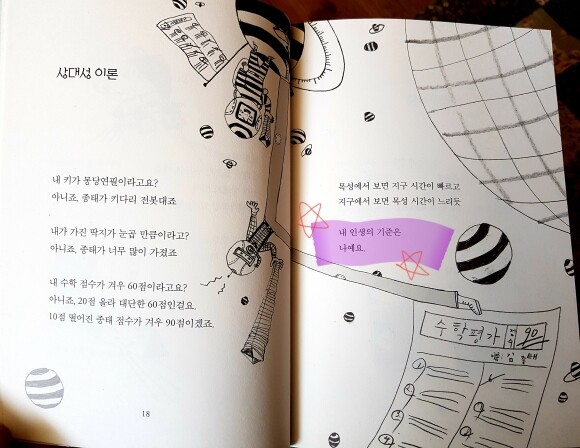 상대성 이론
내 키가 몽당연필이라고요?
아니죠, 종태가 키다리 전봇대죠
내가 가진 딱지가 눈곱 만큼이라고?
아니죠, 종태가 너무 많이 가졌죠
내 수학 점수가 겨우 60점이라고요?
아니죠, 20점 올라 대단한 60점인걸요.
10점 떨어진 종태 점수가 겨우 90점이겠죠.
18
목성에서 보면 지구 시간이 빠르고
지구에서 보면 목성 시간이 느리듯
내 인생의 기준은
나예요.
수학평가
점수
90
이름: 김종태